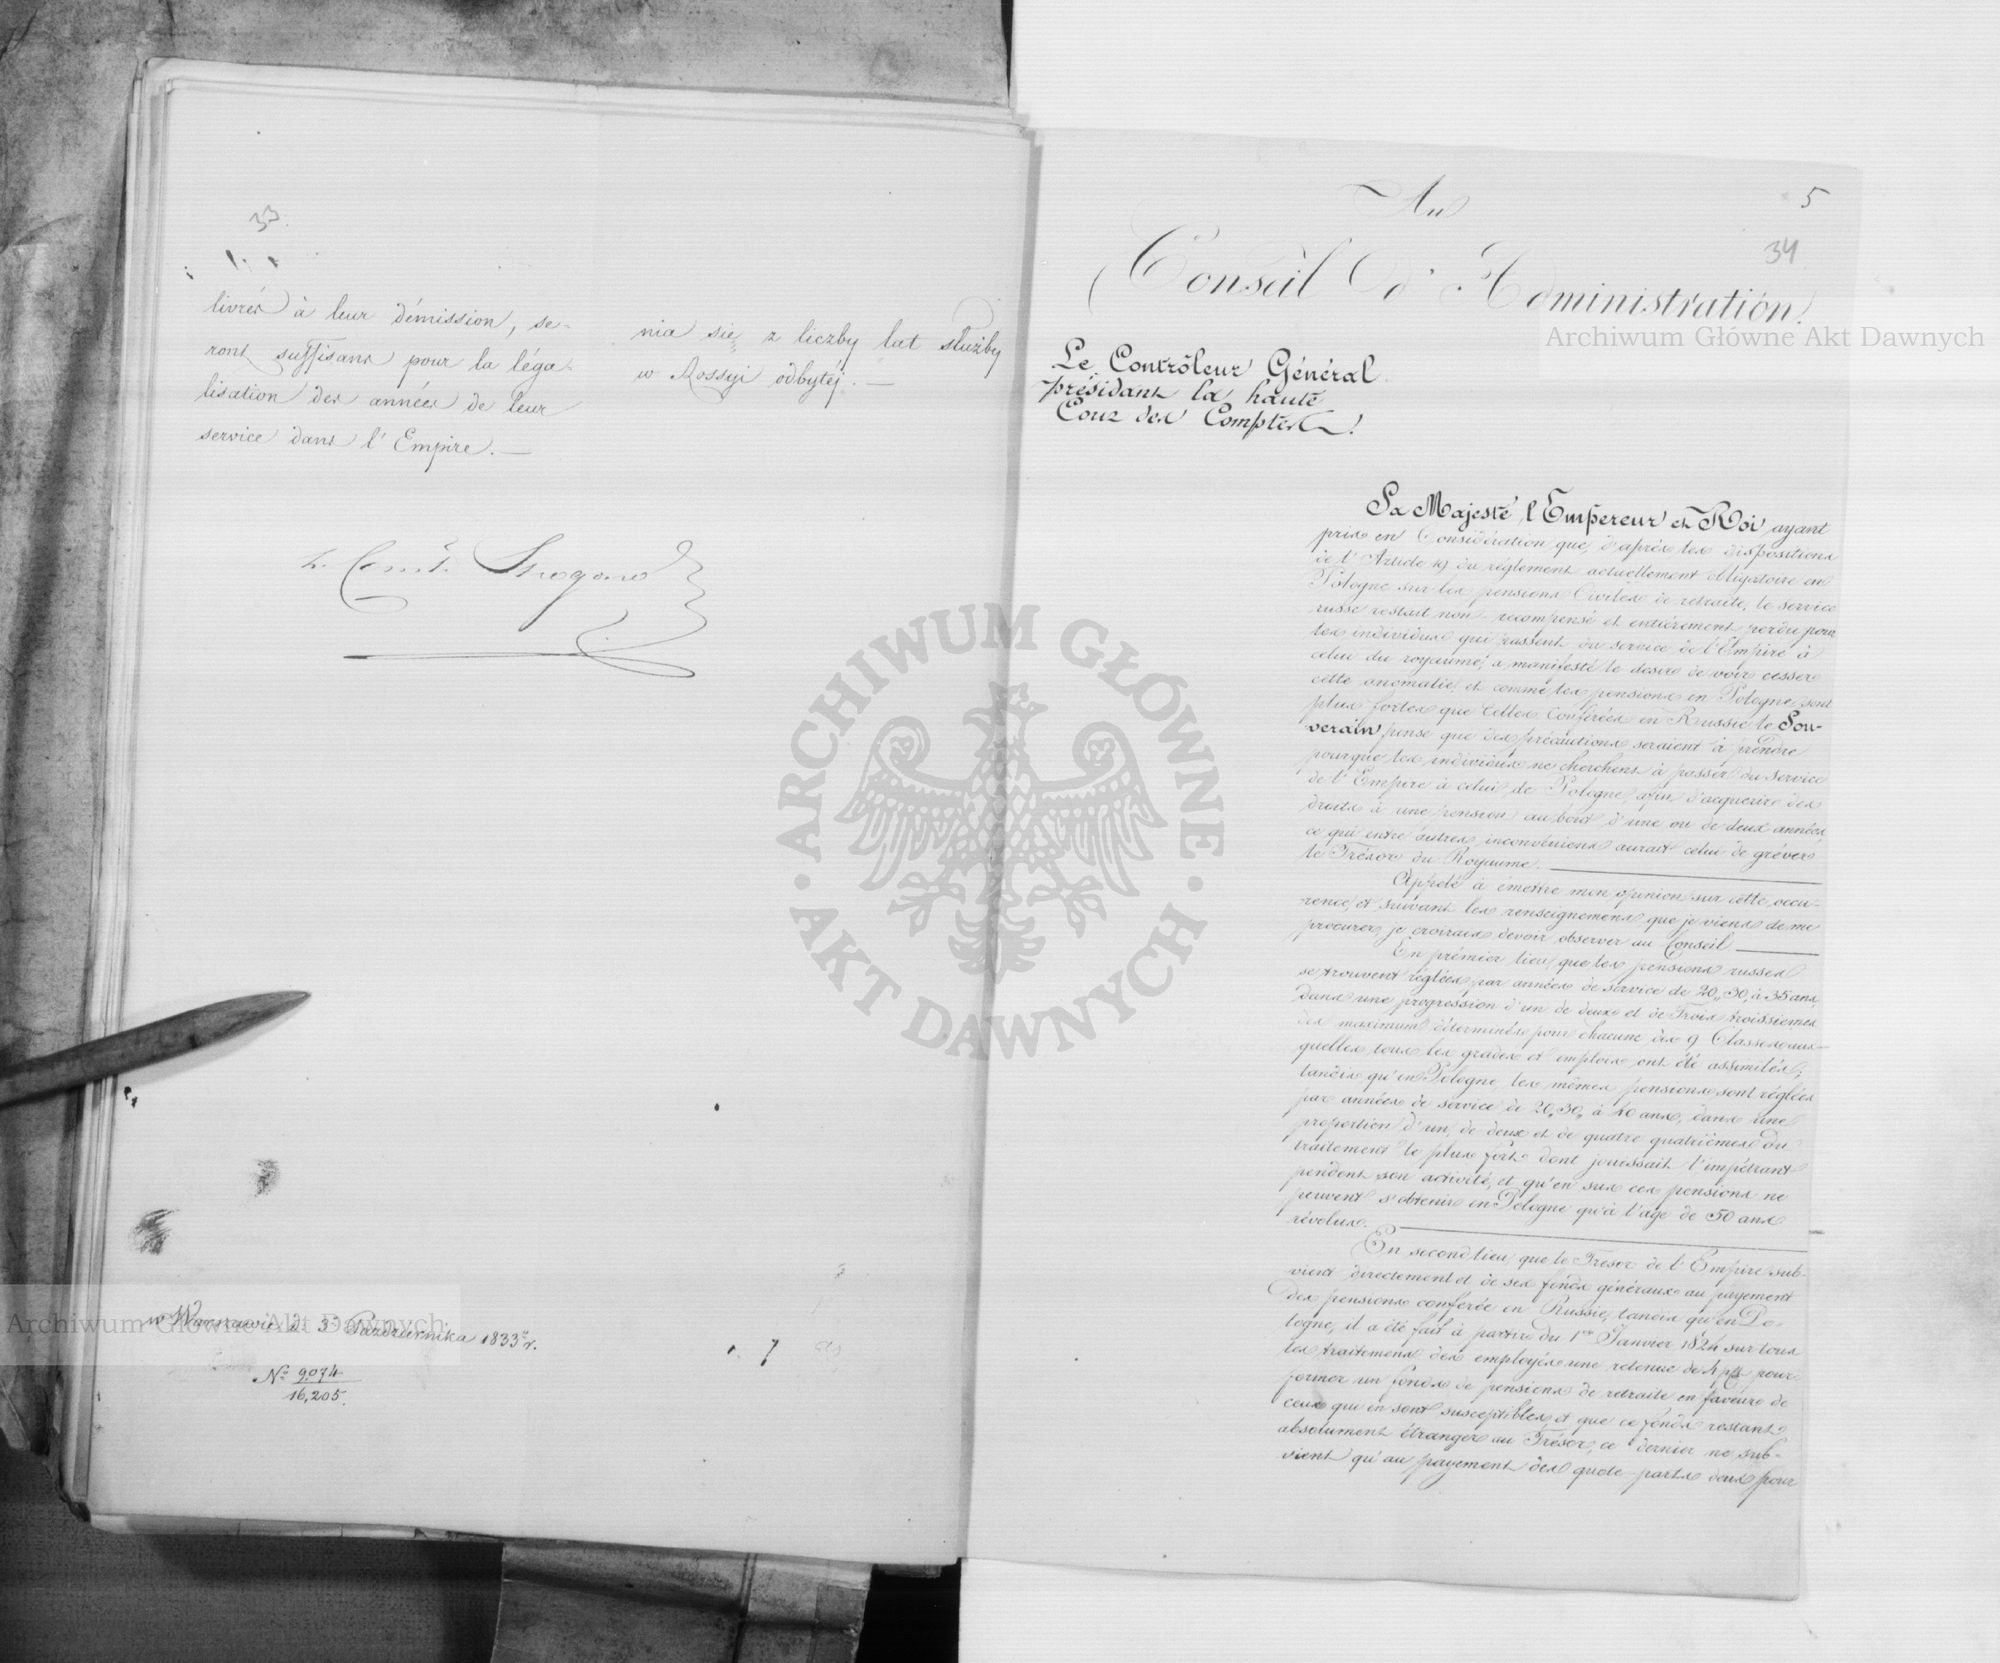 33
livrés à leur démission, se-
ront suffisans pour la léga-
lisation des années de leur
service dans l'Empire. —
nia się z liczby lat służby
w Rossyi odbytéj. —
w Warszawie d. 3 Października 1833 r.
No 9074
16,205.
5
34
Au
Conseil d'Administration.
Le Contrôleur Général
présidant la haute
Cour des Comptes.
Sa Majesté l'Empereur et Roi, ayant
pris en Considération que, d'après les dispositions
de l'Article 19 du réglement actuellement obligatoire en
Pologne sur les pensions Civiles de retraite, le service
russe restait non-recompensé et entièrement perdu pour
les individus qui passent du service de l'Empire à
celui du royaume, a manifesté le desir de voir cesser
cette anomalie; et comme les pensions en Pologne sont
plus fortes que celles Conférées en Russie le Sou-
verain pense que des précautions seraient à prendre
pourque les individus ne cherchent à passer du service
de l'Empire à celui de Pologne, afin d'acquerir des
droits à une pension au bout d'une ou de deux années,
ce qui entre autres inconvéniens aurait celui de gréver
le Trésor du Royaume. —
Appelé à émettre mon opinion sur cette occu-
rence, et suivant les renseignemens que je viens de me
procurer, je croirais devoir observer au Conseil —
En prémier lieu, que les pensions russes
se trouvent réglées par années de service de 20, 30, à 35 ans,
dans une progression d'un de deux et de Trois troissiemes
des maximum déterminés pour chacune des 9 Classes aux-
quelles tous les grades et emplois ont été assimilés;
tandis qu'en Pologne, les mêmes pensions sont réglées
par années de service de 20, 30, à 40 ans, dans une
proportion d'un, de deux et de quatre quatrièmes du
traitement le plus fort dont jouissait l'impétrant
pendent son activité, et qu'en sus ces pensions ne
peuvent s'obtenir en Pologne qu'à l'age de 50 ans
révolus. —
En second lieu, que le Tresor de l'Empire sub-
vient directement et de ses fonds généraux au payement
des pensions conferée en Russie, tandis qu'en Po-
logne, il a été fait à partir du 1er Janvier 1824 sur tous
les traitemens des employés une retenue de 4 pour
former un fonds de pensions de retraite en faveur de
ceux qui en sont susceptibles, et que ce fonds restant
absolument étranger au Trésor, ce dernier ne sub-
vient qu'au payement des quote-parts dous pour
Archiwum Główne Akt Dawnych
Archiwum Główne Akt Dawnych
ARCHIWUM GŁÓWNE
AKT DAWNYCH